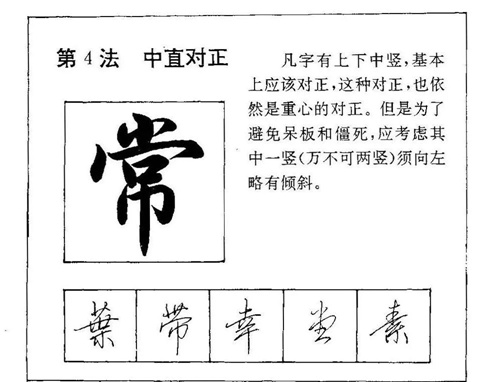 第4法 中直对正
凡字有上下中竖，基本
上应该对正，这种对正，也依
然是重心的对正。但是为了
避免呆板和僵死，应考虑其
中一竖（万不可两竖）须向左
略有倾斜。
常
葉 带 幸 堂 素